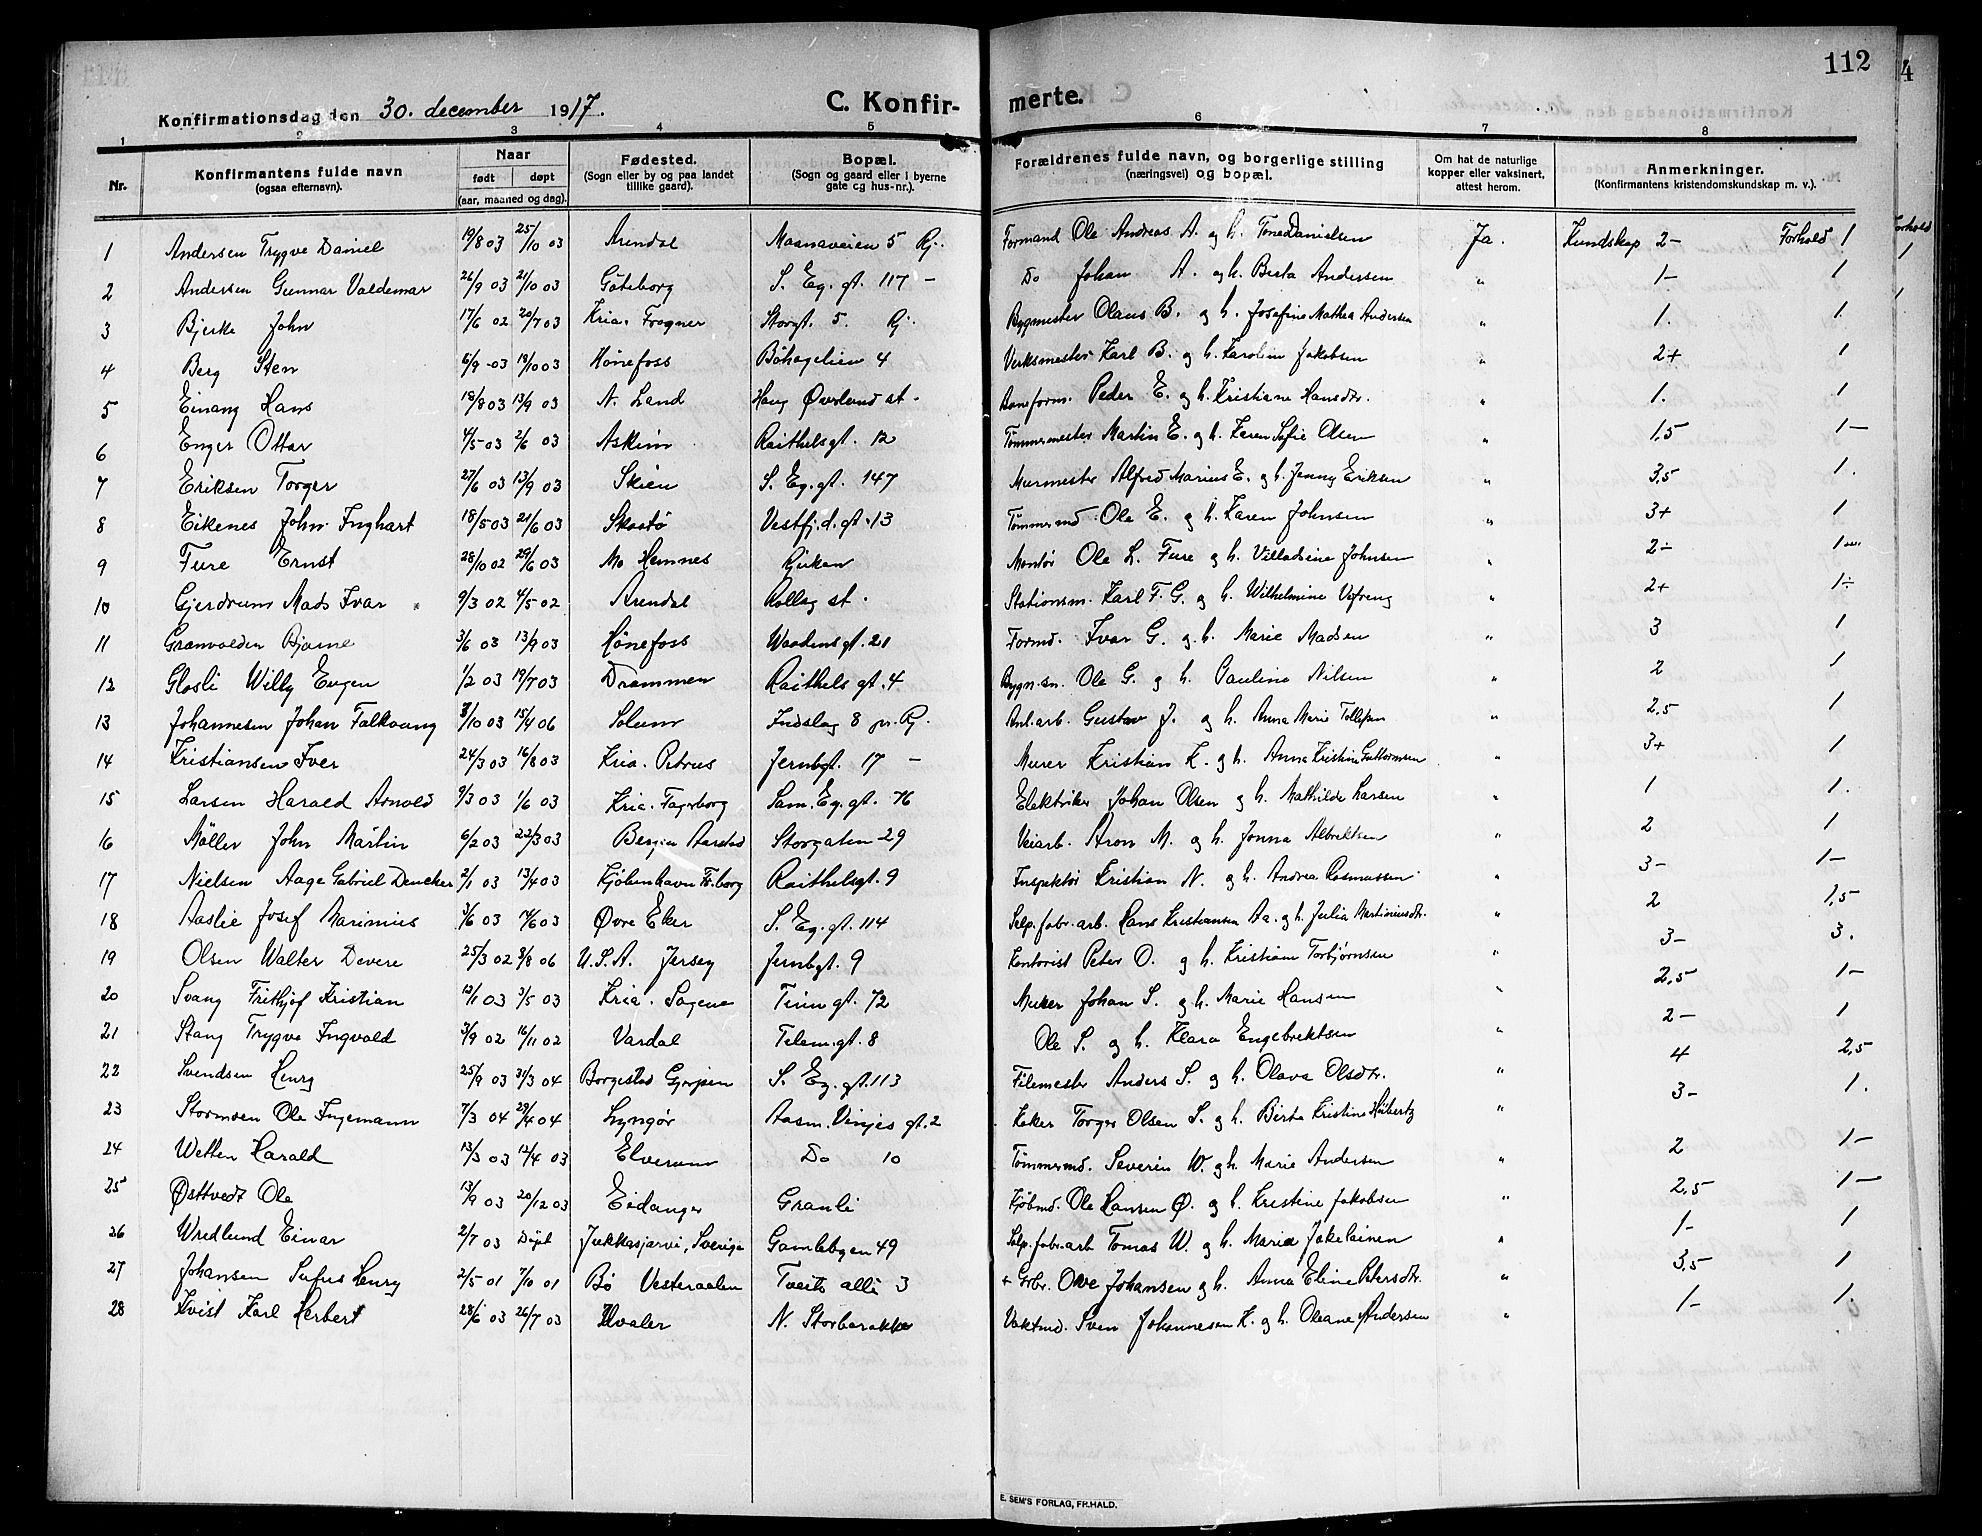 112
4
Konfirmationsdag den 30. december 1917. C. Konfir- merte.
1 2 3 4 5 6 7 8
Nr. Konfirmantens fulde navn (ogsaa efternavn). Naar født døpt (aar, maaned og dag). Fødested. (Sogn eller by og paa landet tillike gaard). Bopæl. (Sogn og gaard eller i byerne gate og hus-nr.). Forældrenes fulde navn, og borgerlige stilling (næringsvei) og bopæl. Om hat de naturlige kopper eller vaksinert, attest herom. Anmerkninger. (Konfirmantens kristendomskundskap m. v.).
1 Andersen Trygve Daniel 19/8 03 25/10 03 Arendal Maanaveien 5 Rj. Formand Ole Andreas A. og h. Tone Danielsen Ja. Kundskap 2- Forhold 1
2 Andersen Gunnar Valdemar 26/9 03 21/10 03 Göteborg S. Eg. gt. 117 - Do Johan A. og h. Berta Andersen " 1- 1
3 Bjerke John 17/6 02 20/7 03 Kria. Frogner Storgt. 5. Rj. Bygmester Olaus B. og h. Josefine Mathea Andersen " 1. 1
4 Berg Sten 6/9 03 19/10 03 Hønefoss Bøhagelien 4 Verksmester Karl B. og h. Karoline Jakobsen " 2+ 1
5 Einang Hans 18/8 03 13/9 03 N. Land Haug Øverlund st. Baneform. Peder E. og h. Kristiane Hansdtr. " 1. 1
6 Enger Ottar 4/5 03 2/6 03 Askim Raithelsgt. 12 Tømmermester Martin E. og h. Karen Sofie Olsen " 1,5 1-
7 Eriksen Torger 27/6 03 13/9 03 Skien S. Eg. gt. 147 Murmester Alfred Marius E. og h. Jenny Eriksen " 3,5 1.
8 Eikenes John Inghart 18/5 03 21/6 03 Skaatø Vestfj.d. gt. 13 Tømmermd. Ole E. og h. Karen Johnsen " 3+ 1
9 Fure Ernst 28/10 02 29/6 03 Mo Hemnes Rjukan Montør Ole L. Fure og h. Villadsine Johnsen " 2- 1-
10 Gjerdrum Mads Ivar 9/3 02 4/5 02 Arendal Rollag st. Stationsm. Karl F. G. og h. Wilhelmine " 2+ 1-
11 Granvolden Bjarne 3/6 03 13/9 03 Hønefoss Waadensgt. 21 Formd. Ivar G. og h. Marie Madsen " 3 1
12 Glosli Willy Eugen 1/2 03 19/7 03 Drammen Raithels gt. 4 Bygn.sn. Ole G. og h. Pauline Nilsen " 2 1
13 Johannesen Johan Falkvang 3/10 03 15/4 06 Solum Indslag 8 pr. Rj. Anl.arb. Gustav J. og h. Anna Marie Tollefsen " 2,5 1
14 Kristiansen Iver 24/3 03 16/8 03 Kria. Petrus Jernbgt. 17 - Murer Kristian K. og h. Anna Kristine Guttormsen " 3+ 1
15 Larsen Harald Arnold 9/3 03 1/6 03 Kria. Fagerborg Sam. Eg. gt. 76 Elektriker Johan Olsen og h. Mathilde Larsen " 1 1.
16 Møller John Martin 6/2 03 22/3 03 Bergen Aarstad Storgaten 29 Veiarb. Aron M. og h. Jonna Albrektsen " 2 1
17 Nielsen Aage Gabriel Dencker 2/1 03 13/4 03 Kjöbenhavn Fr.borg Raithelsgt. 9 Inspektør Kristian N. og h. Andrea Rasmussen " 3- 1-
18 Aaslie Josef Marinius 3/6 03 7/6 03 Øvre Eker S. Eg. gt. 114 Salp.fabr.arb. Hans Kristiansen Aa. og h. Julia Martiniusdtr. " 2 1,5
19 Olsen Walter Devere 25/3 02 3/8 06 U.S.A. Jersey Jernbgt. 9 Kontorist Peter O. og h. Kristiane Torbjørnsen " 3- 3.
20 Svang Frithjof Kristian 12/1 03 3/5 03 Kria. Sagene Tinn gt. 72 Murer Johan S. og h. Marie Hansen " 2,5 1-
21 Stang Trygve Ingvald 3/9 02 16/11 02 Vardal Telem. gt. 8 Ole S. og h. Klara Engebrektsen " 2- 1
22 Svendsen Henry 25/9 03 31/3 04 Borgestad Gjerpen S. Eg. gt. 113 Filemester Anders S. og h. Olava Olsdtr. " 4 2,5
23 Stormoen Ole Ingemann 7/3 04 29/4 04 Lyngør Aasm. Vinjes gt. 2 Koker Torger Olsen S. og h. Birte Kristine Hübertz " 3- 1.
24 Wetten Harald 13/3 03 12/4 03 Elverum Do 10 Tømmermd. Severin W. og h. Marie Andersen " 2 1-
25 Østtvedt Ole 13/9 03 20/12 03 Eidanger Granli Kjøbmd. Ole Hansen Ø. og h. Kristine Jakobsen " 2,5 1-
26 Wredlund Einar 2/7 03 Døpt Jukkasjarvi, Sverige Gamlebyen 49 Salp.fabr.arb Tomas W. og h. Maria Jakelainen " 1- 1
27 Johansen Sufus Henry 2/5 01 7/10 01 Bø Vesteraalen Tveits allé 3 + Grbr. Ove Johansen og h. Anna Eline Petersdtr. " 3,5 1
28 Kvist Karl Herbert 28/6 03 26/7 03 Hvaler N. Storbarakke Vaktmd. Sven Johannesen K. og h. Oleane Andersen " 1- 1.
E. SEM'S FORLAG, FR.HALD.